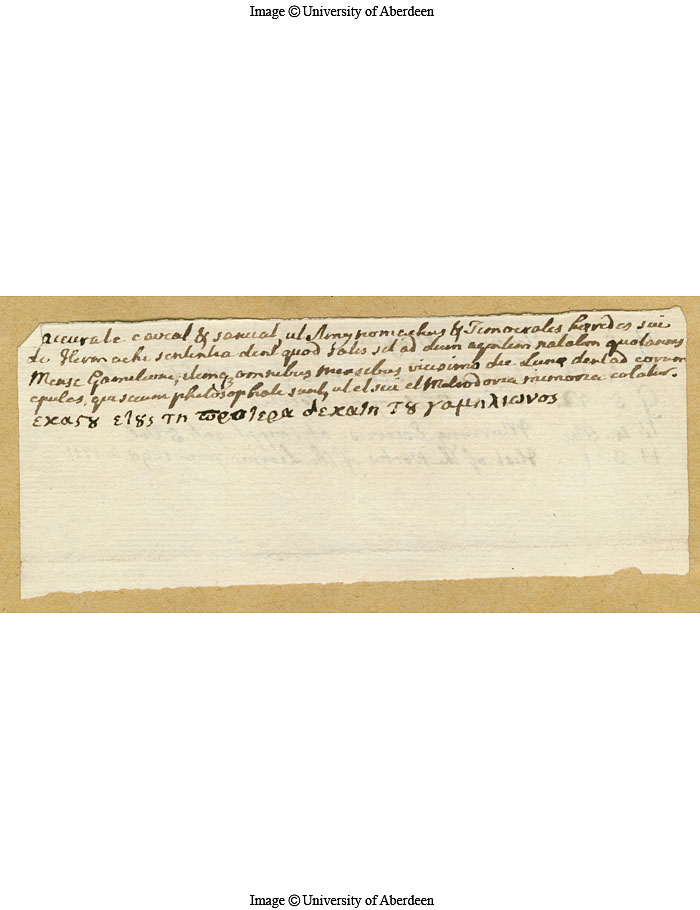 Image © University of Aberdeen
accurate caveat & sanciat ut Amynomachus & Timocrates heredes sui
de Hermachi sententia dent quod satis sit ad diem agendum natalem quotannis
Mense Gamelione, itemq omnibus mensibus vicesimo die Lune dent ad eorum
epulas, qui secum philosophati sunt, ut et sui et Metrodori memoria colatur.
εκαςȣ ετȣς τη ϖροτερα δεκατη τȣ γαμηλιωνος
Image © University of Aberdeen